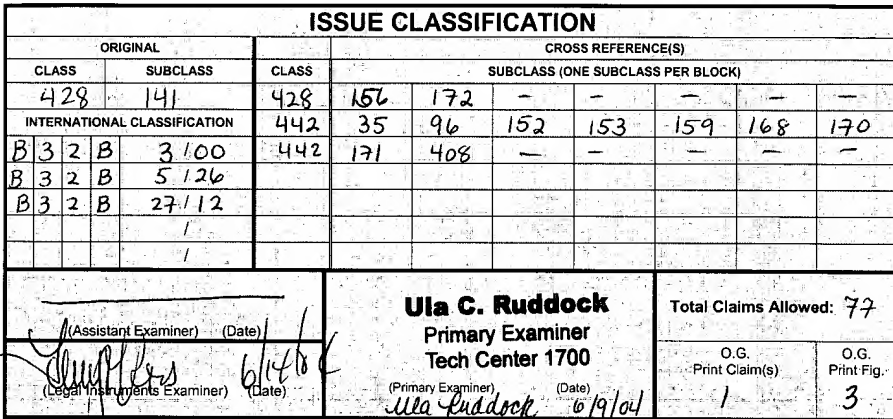 ISSUE CLASSIFICATION
ORIGINAL CROSS REFERENCE(S)
CLASS SUBCLASS CLASS SUBCLASS (ONE SUBCLASS PER BLOCK)
428 141 428 156 172 - - - - -
INTERNATIONAL CLASSIFICATION 442 35 96 152 153 159 168 170
B 3 2 B 3 / 00 442 171 408 - - - - -
B 3 2 B 5 / 26
B 3 2 B 27 / 12
/
/
(Assistant Examiner) (Date)
(Legal Instruments Examiner) (Date)
Ula C. Ruddock
Primary Examiner
Tech Center 1700
(Primary Examiner) (Date)
Ula Ruddock 6/9/04
Total Claims Allowed: 77
O.G. Print Claim(s) O.G. Print Fig.
1 3